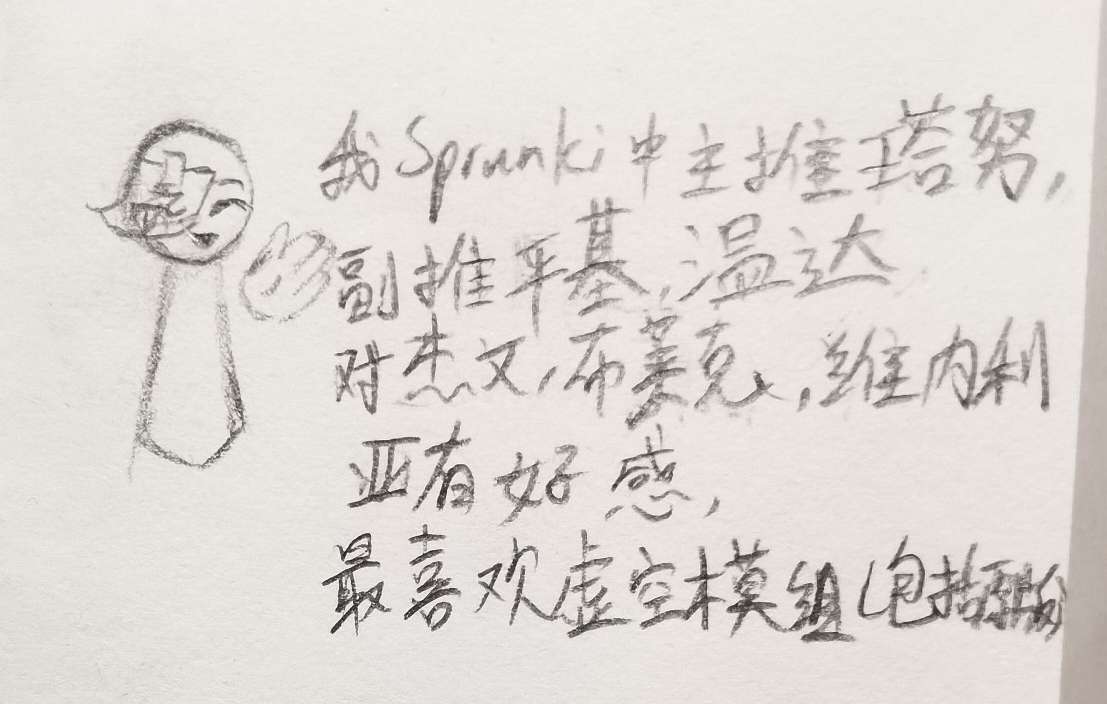 我Sprunki中主推塔努,
副推平基,温达
对杰文,布莱克,维内利
亚有好感,
最喜欢虚空模组(包括